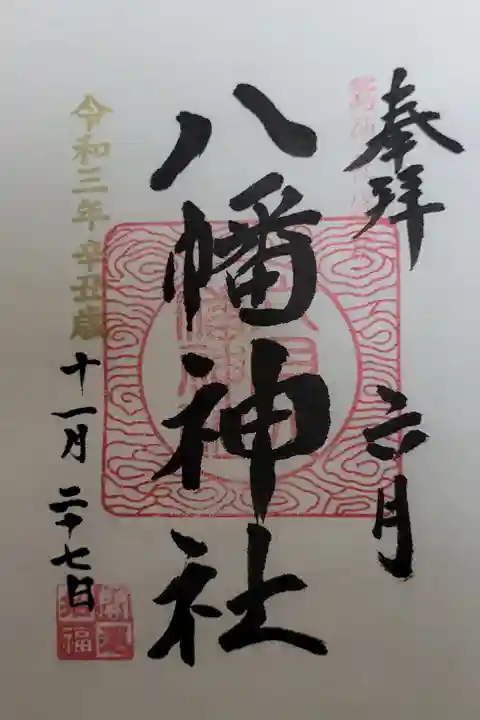 奉拝
六月
八幡神社
令和三年辛丑歳
十一月二十七日